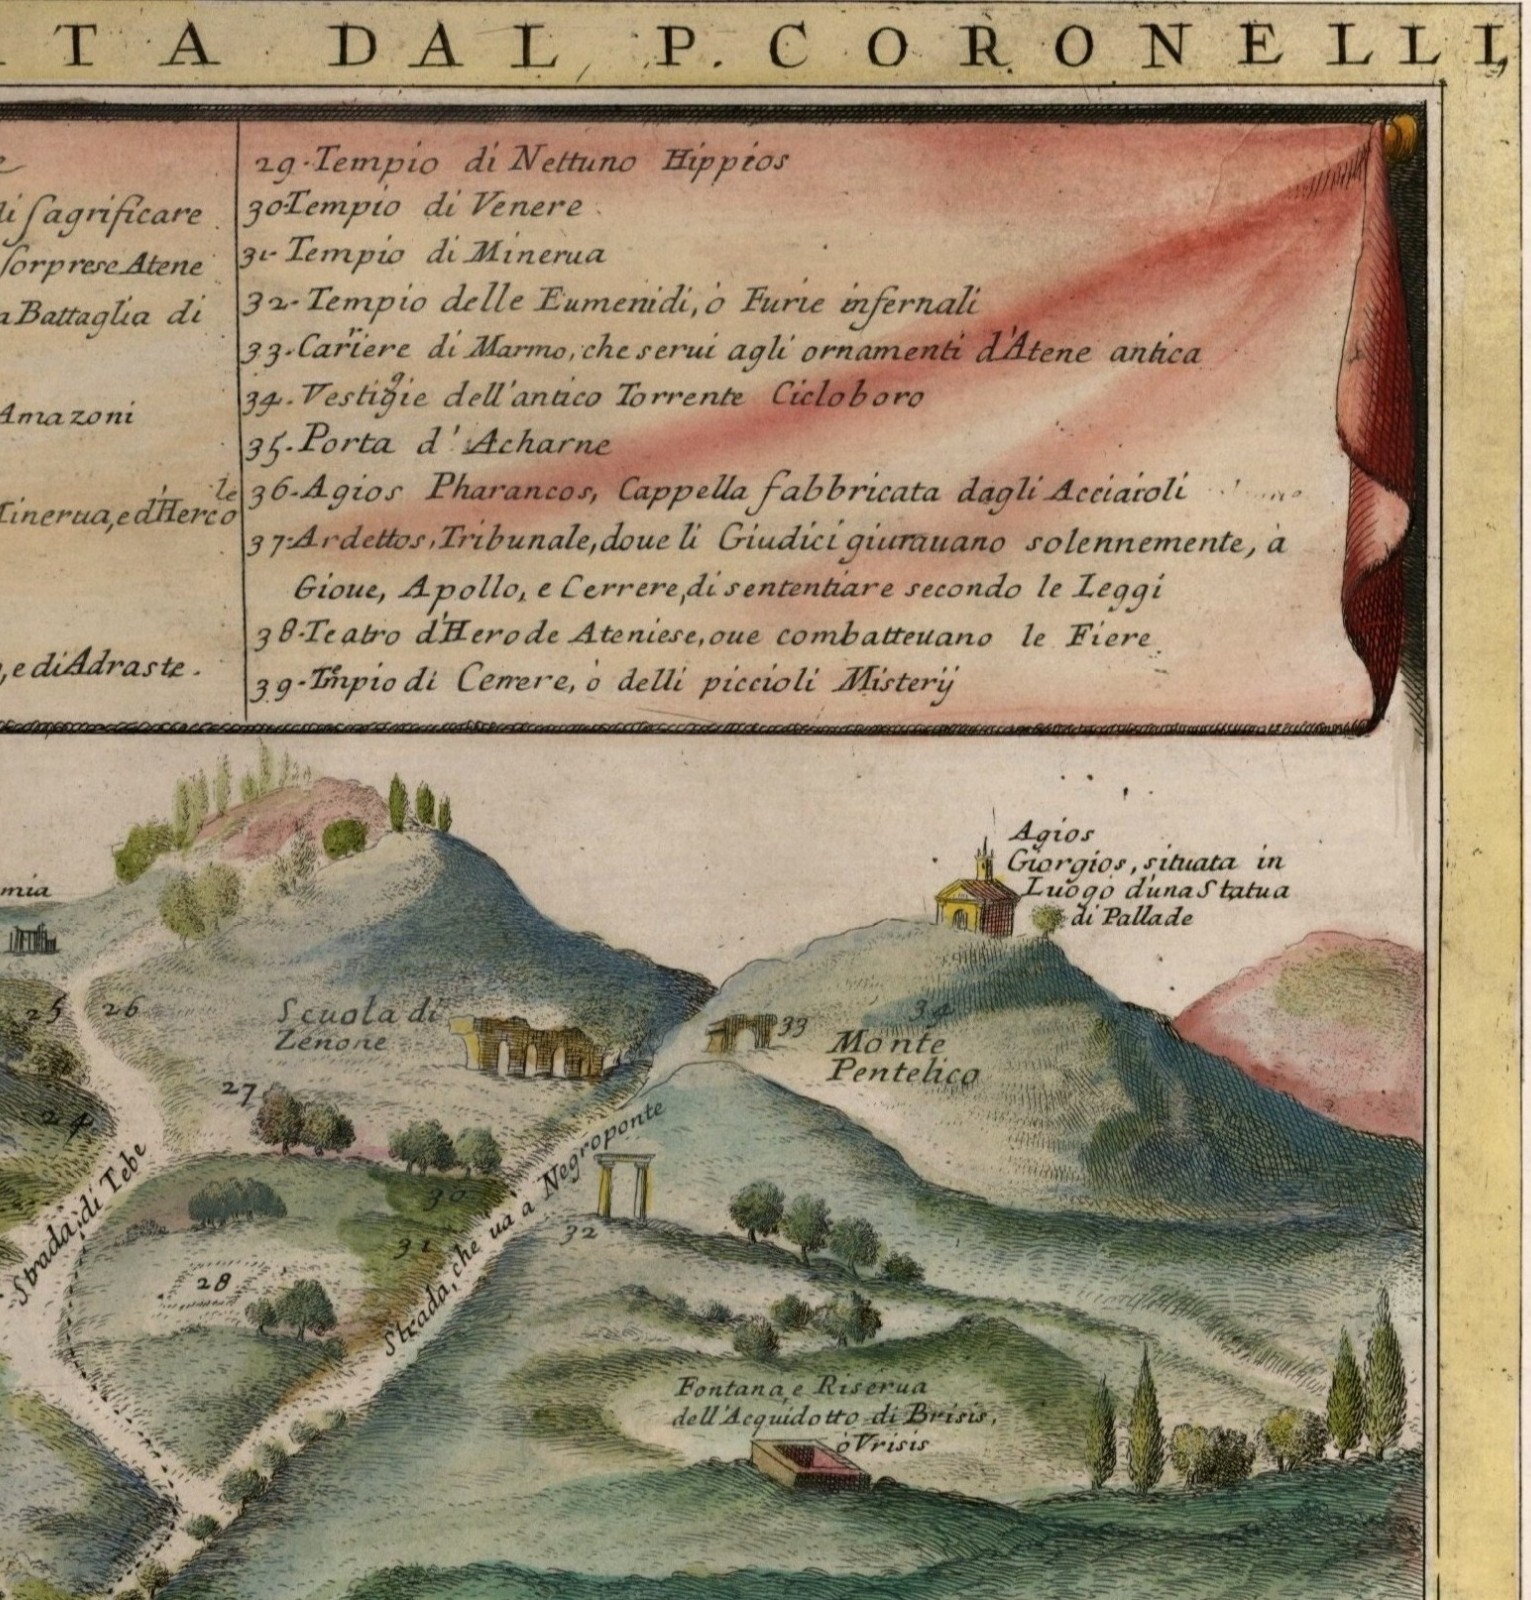 TA DAL P. CORONELLI,
di sagrificare
sorprese Atene
Battaglia di
Amazoni
le
Minerua, e d'Herco
, e di Adraste.
29. Tempio di Nettuno Hippios
30 Tempio di Venere
31. Tempio di Minerua
32. Tempio delle Eumenidi, ò Furie infernali
33. Carriere di Marmo, che serui agli ornamenti d'Atene antica
34. Vestigie dell'antico Torrente Cicloboro
35. Porta d'Acharne
36. Agios Pharancos, Cappella fabbricata dagli Acciaioli
37. Ardettos, Tribunale, doue li Giudici giurauano solennemente, à
Gioue, Apollo, e Cerrere, di sententiare secondo le Leggi
38. Teatro d'Herode Ateniese, oue combatteuano le Fiere
39. Tempio di Cerrere, ò delli piccioli Misterij
Agios
Giorgios, situata in
Luogo d'una Statua
di Pallade
mia
25 26
Scuola di
Zenone
33
34
Monte
Pentelico
27
24
Strada di Tebe
30
31
28
Strada, che uà à Negroponte
32
Fontana, e Riserua
dell'Acquidotto di Brisis,
ò Vrisis